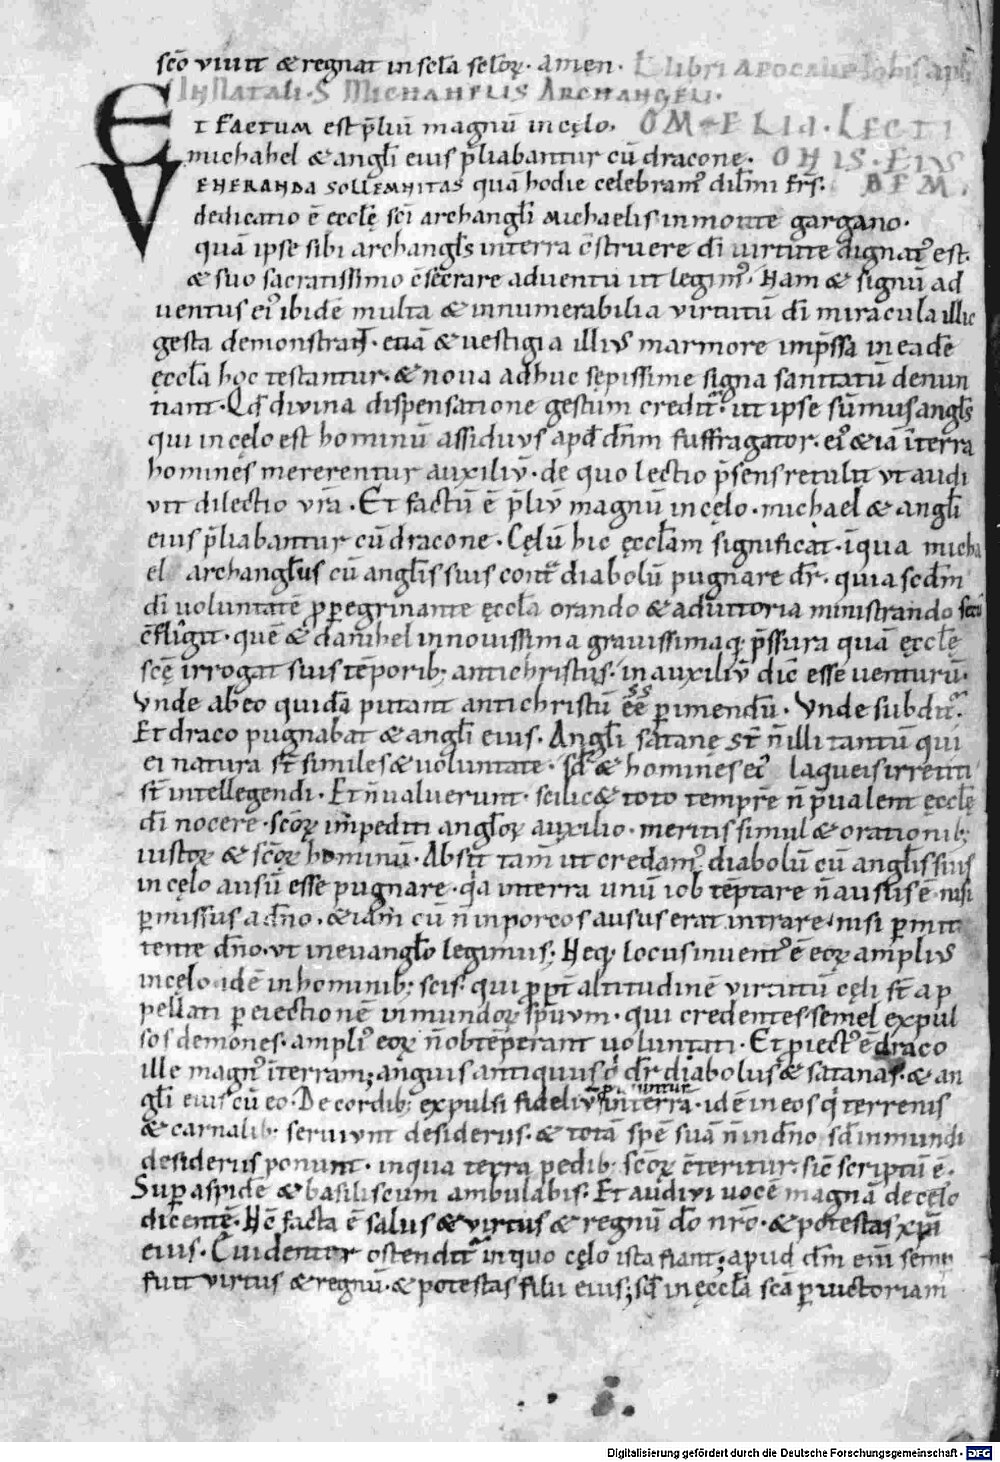 sc̄o vivit & regnat in sc̄la sc̄lorꝝ. amen. E libri apocalip̄ Iohis apl̄i
IN NATALI. S MICHAHELIS ARCHANGELI.
ET FACTUM est p̄liū magnū in cęlo. OMELIA. LECTI
michahel & angl̄i eius p̄liabantur cū dracone. ONIS. EIVS
VENERANDA SOLLEMNITAS quā hodie celebram᾽ dil̄mi fr̄s. DEM.
dedicatio ē eccl̄ę sc̄i archangl̄i michaelis in monte gargano.
quā ipse sibi archangl̄s in terra c̄struere dī virtute dignat᾽ est.
& suo sacratissimo c̄secrare adventu ut legim᾽. Nam & signū ad
uentus ei᾽ ibidē multa & innumerabilia virtutū dī miracula illic
gesta demonstrant. etiā & uestigia illius marmore imp̄ssa in eadē
ęccl̄a hoc testantur. & noua adhuc sępissime signa sanitatū denun
tiant. Qd̄ divina dispensatione gestum credit᾽. ut ipse sūmus angl̄s
qui in cęlo est hominū assiduus apd̄ dn̄m suffragator. ei᾽ & iā ī terra
homines mererentur auxiliū. de quo lectio p̄sens retulit ut audi
vit dilectio vr̄a. Et factū ē p̄liū magnū in cęlo. michael & angl̄i
eius p̄liabantur cū dracone. Cęlū hic ęccl̄am significat. ī qua micha
el archangl̄us cū angl̄is suis cont᾽ diabolū pugnare dr̄. quia scd̄m
dī uoluntatē ꝓ peregrinante ęccl̄a orando & adiutoria ministrando
c̄fligit. quē & danihel in novissima gravissimaq; p̄ssura quā ęccl̄ę
sc̄ę irrogat suis tēporib; antichristus. in auxiliū dic̄ esse uenturū.
Vnde ab eo quidā putant antichristū ēē perimendū. Vnde subdit᾽.
Et draco pugnabat & angl̄i eius. Angl̄i satanę st̄ n̄ illi tantū qui
ei natura st̄ similes & uoluntate. sd̄ & homines ei᾽ laqueis irretiti
st̄ intellegendi. Et n̄ ualuerunt. scilic& toto tempr̄e n̄ p̄ualent ęccl̄ę
dī nocere. sc̄orꝝ impediti angl̄orꝝ auxilio. meritis simul & orationib;
iustorꝝ & sc̄orꝝ hominū. Absit tam̄ ut credam᾽ diabolū cū angl̄is suis
in cęlo ausū esse pugnare. qa in terra unū iob tēptare n̄ ausus ē nisi
permissus a dn̄o. & iam cū n̄ in porcos ausus erat intrare. nisi permit
tente dn̄o. ut in evangl̄o legimus; Neq; locus invent᾽ ē eorꝝ amplius
in cęlo. idē in hominib; sc̄is. qui ꝓpt̄ altitudinē virtutū cęli st̄ ap
pellati per eiectionē inmundorꝝ sp̄uum. qui credentes semel expul
sos demones. ampli᾽ eorꝝ n̄ obtēperant uoluntati. Et ꝓiect᾽ ē draco
ille magn᾽ ī terram; anguis antiquus q dr̄ diabolus & satanas. & an
gl̄i eius cū eo. De cordib; expulsi fideliū in terra. idē in eos q terrenis
& carnalib; serviunt desideriis. & totā spē suā n̄ in dn̄o sd̄ in mundi
desideriis ponunt. in qua terra pedib; sc̄orꝝ c̄teritur. sic̄ scriptū ē.
Super aspidē & basiliscum ambulabis. Et audivi uocē magnā de cęlo
dicentē. Nc̄ facta ē salus & virtus & regnū do nr̄o. & potestas xp̄i
eius. Evidenter ostendit᾽ in quo cęlo ista fiant; apud dm̄ eni semp
fuit virtus & regnū. & potestas filii eius; sd̄ in ęccl̄a sc̄a per uictoriam
Digitalisierung gefördert durch die Deutsche Forschungsgemeinschaft - DFG